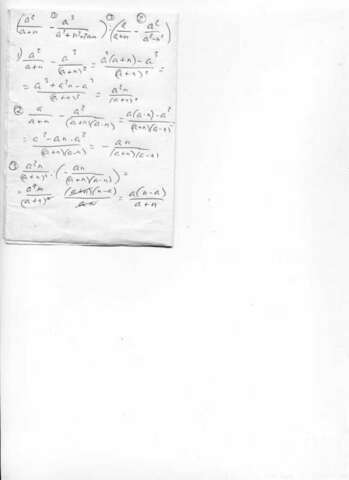 ① ③ ②
(a²/(a+n) - a³/(a²+n²+2an)) : (a/(a+n) - a²/(a²-n²))
1) a²/(a+n) - a³/(a+n)² = (a²(a+n)-a³)/(a+n)² =
= (a³+a²n-a³)/(a+n)² = a²n/(a+n)²
② a/(a+n) - a²/((a+n)(a-n)) = (a(a-n)-a²)/((a+n)(a-n))
= (a²-an-a²)/((a+n)(a-n)) = - an/((a+n)(a-n))
③ a²n/(a+n)² : (- an/((a+n)(a-n))) =
= a²n/(a+n)² · (a+n)(n-a)/an = a(n-a)/(a+n)